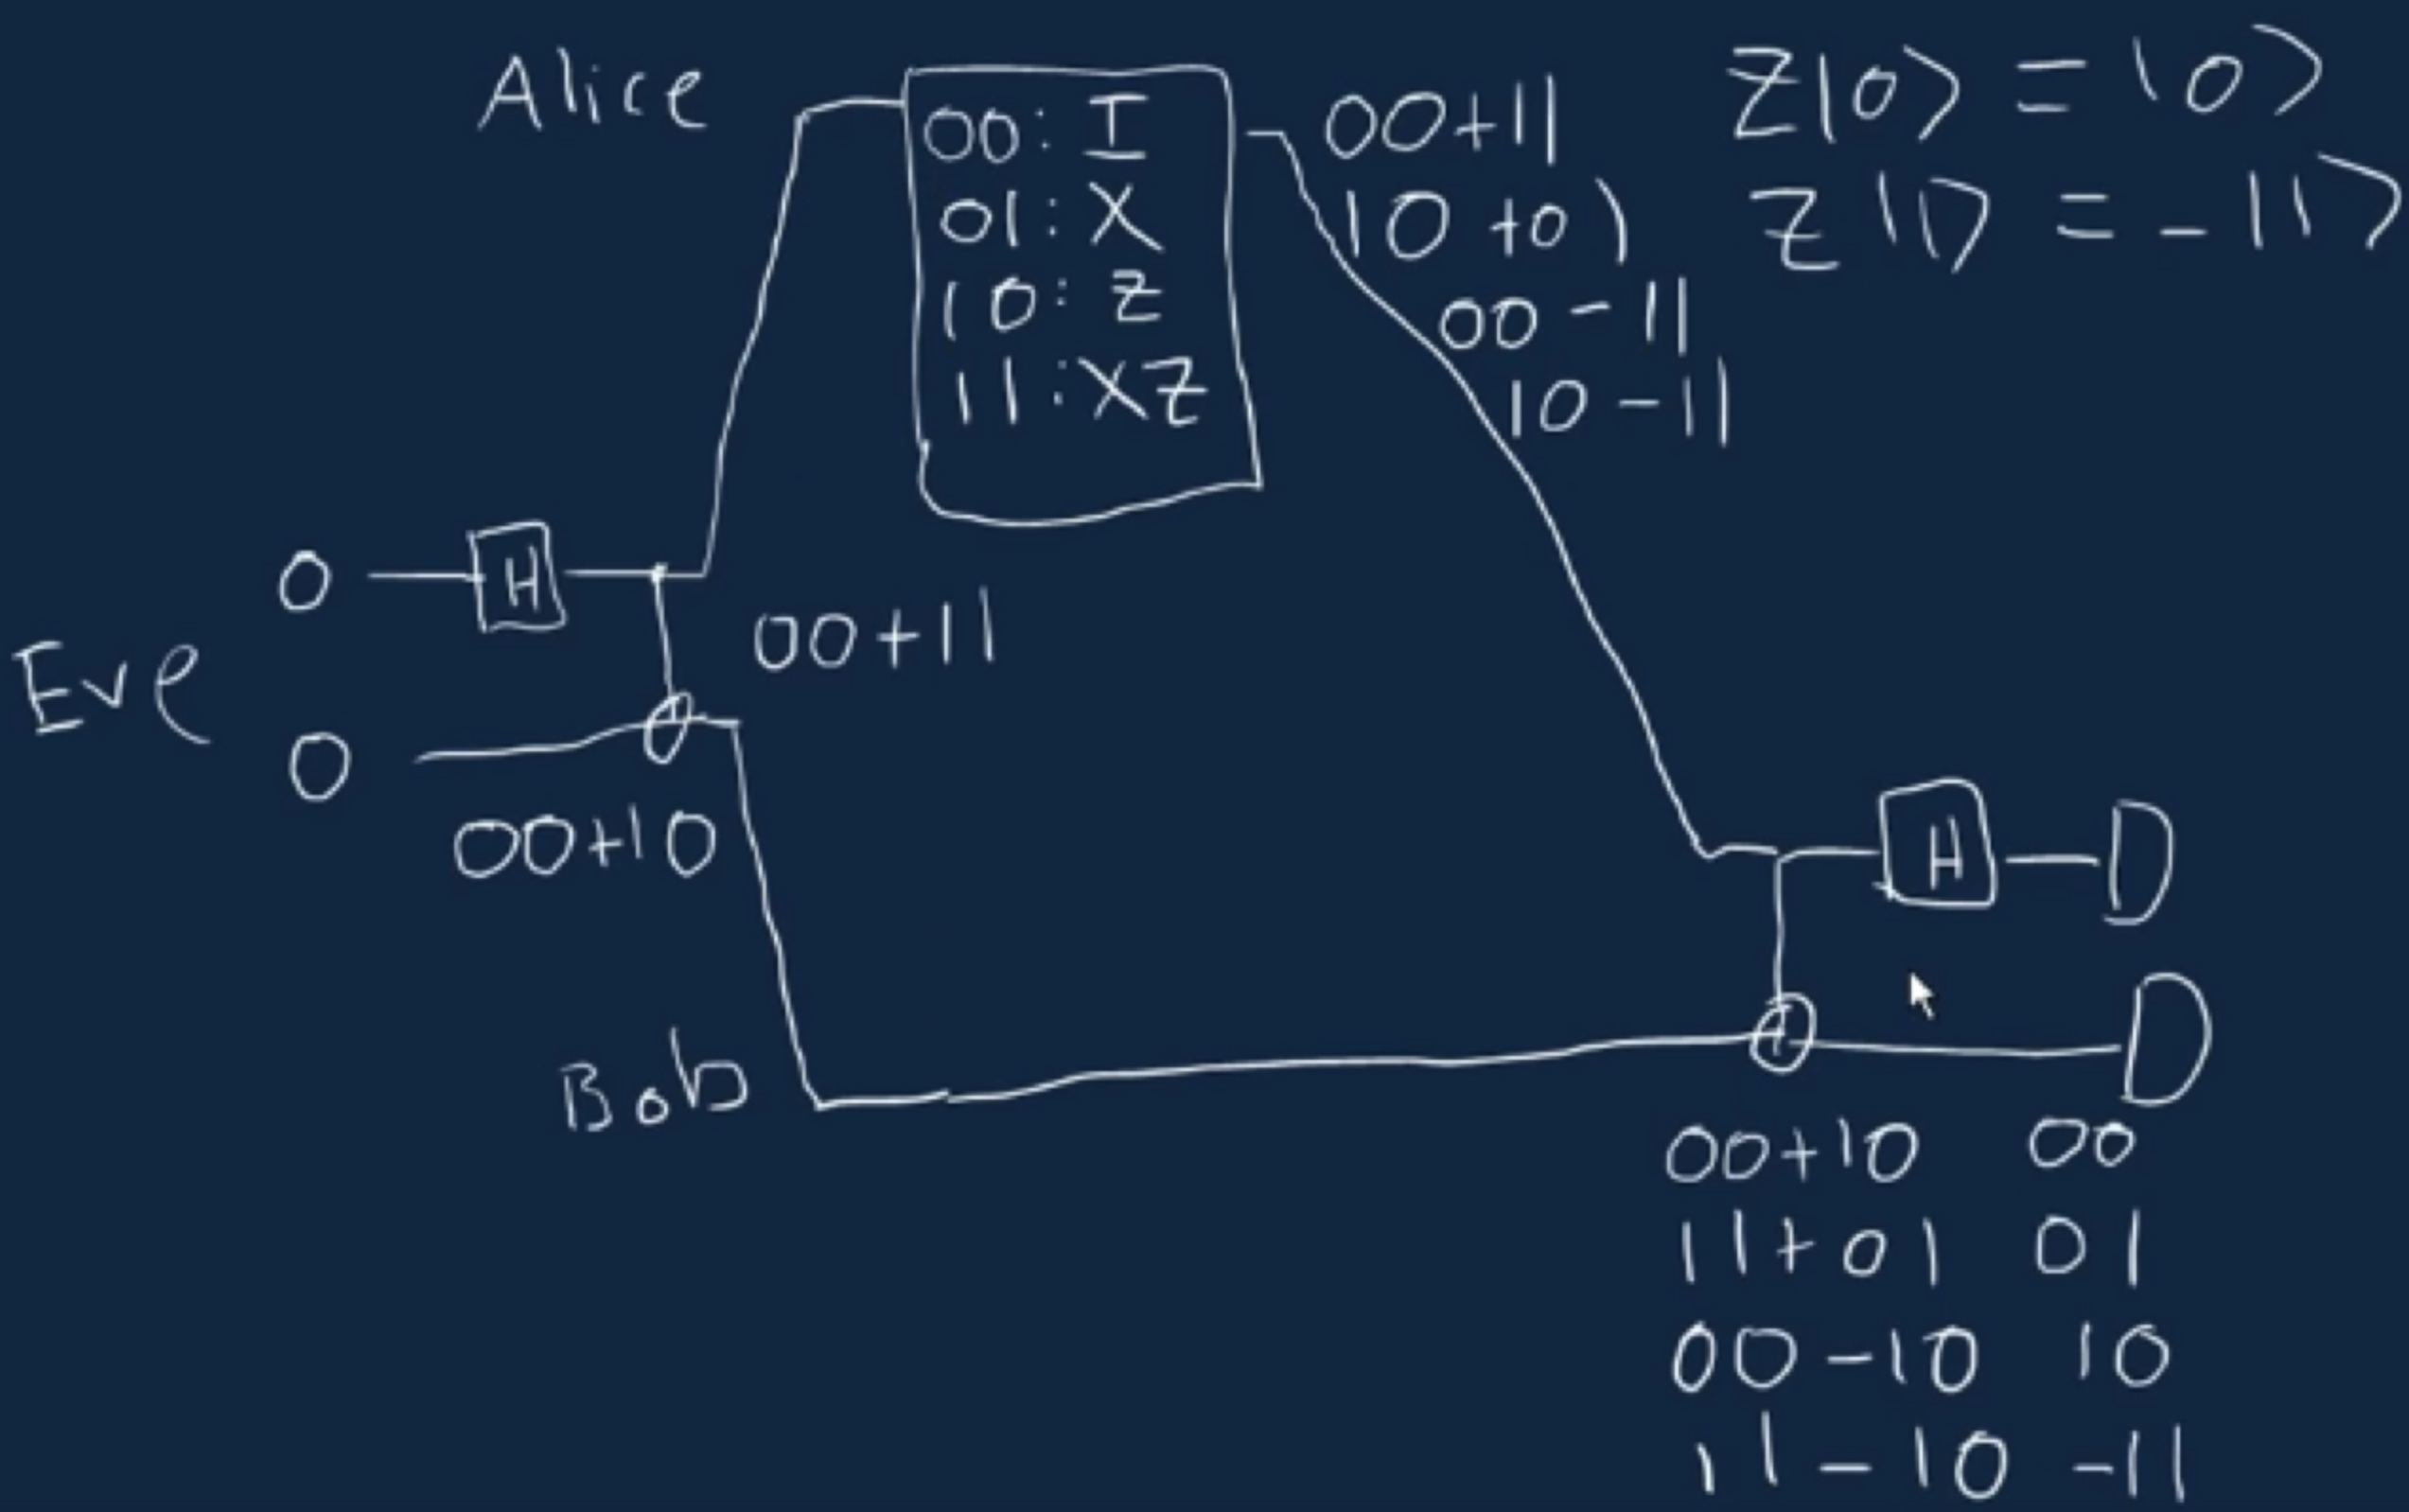 Alice
00: I
01: X
10: Z
11: XZ
00+11
10+01
00-11
10-11
Z|0> = |0>
Z|1> = -|1>
Eve
0
H
0
00+11
00+10
Bob
H
00+10 00
11+01 01
00-10 10
11-10 -11